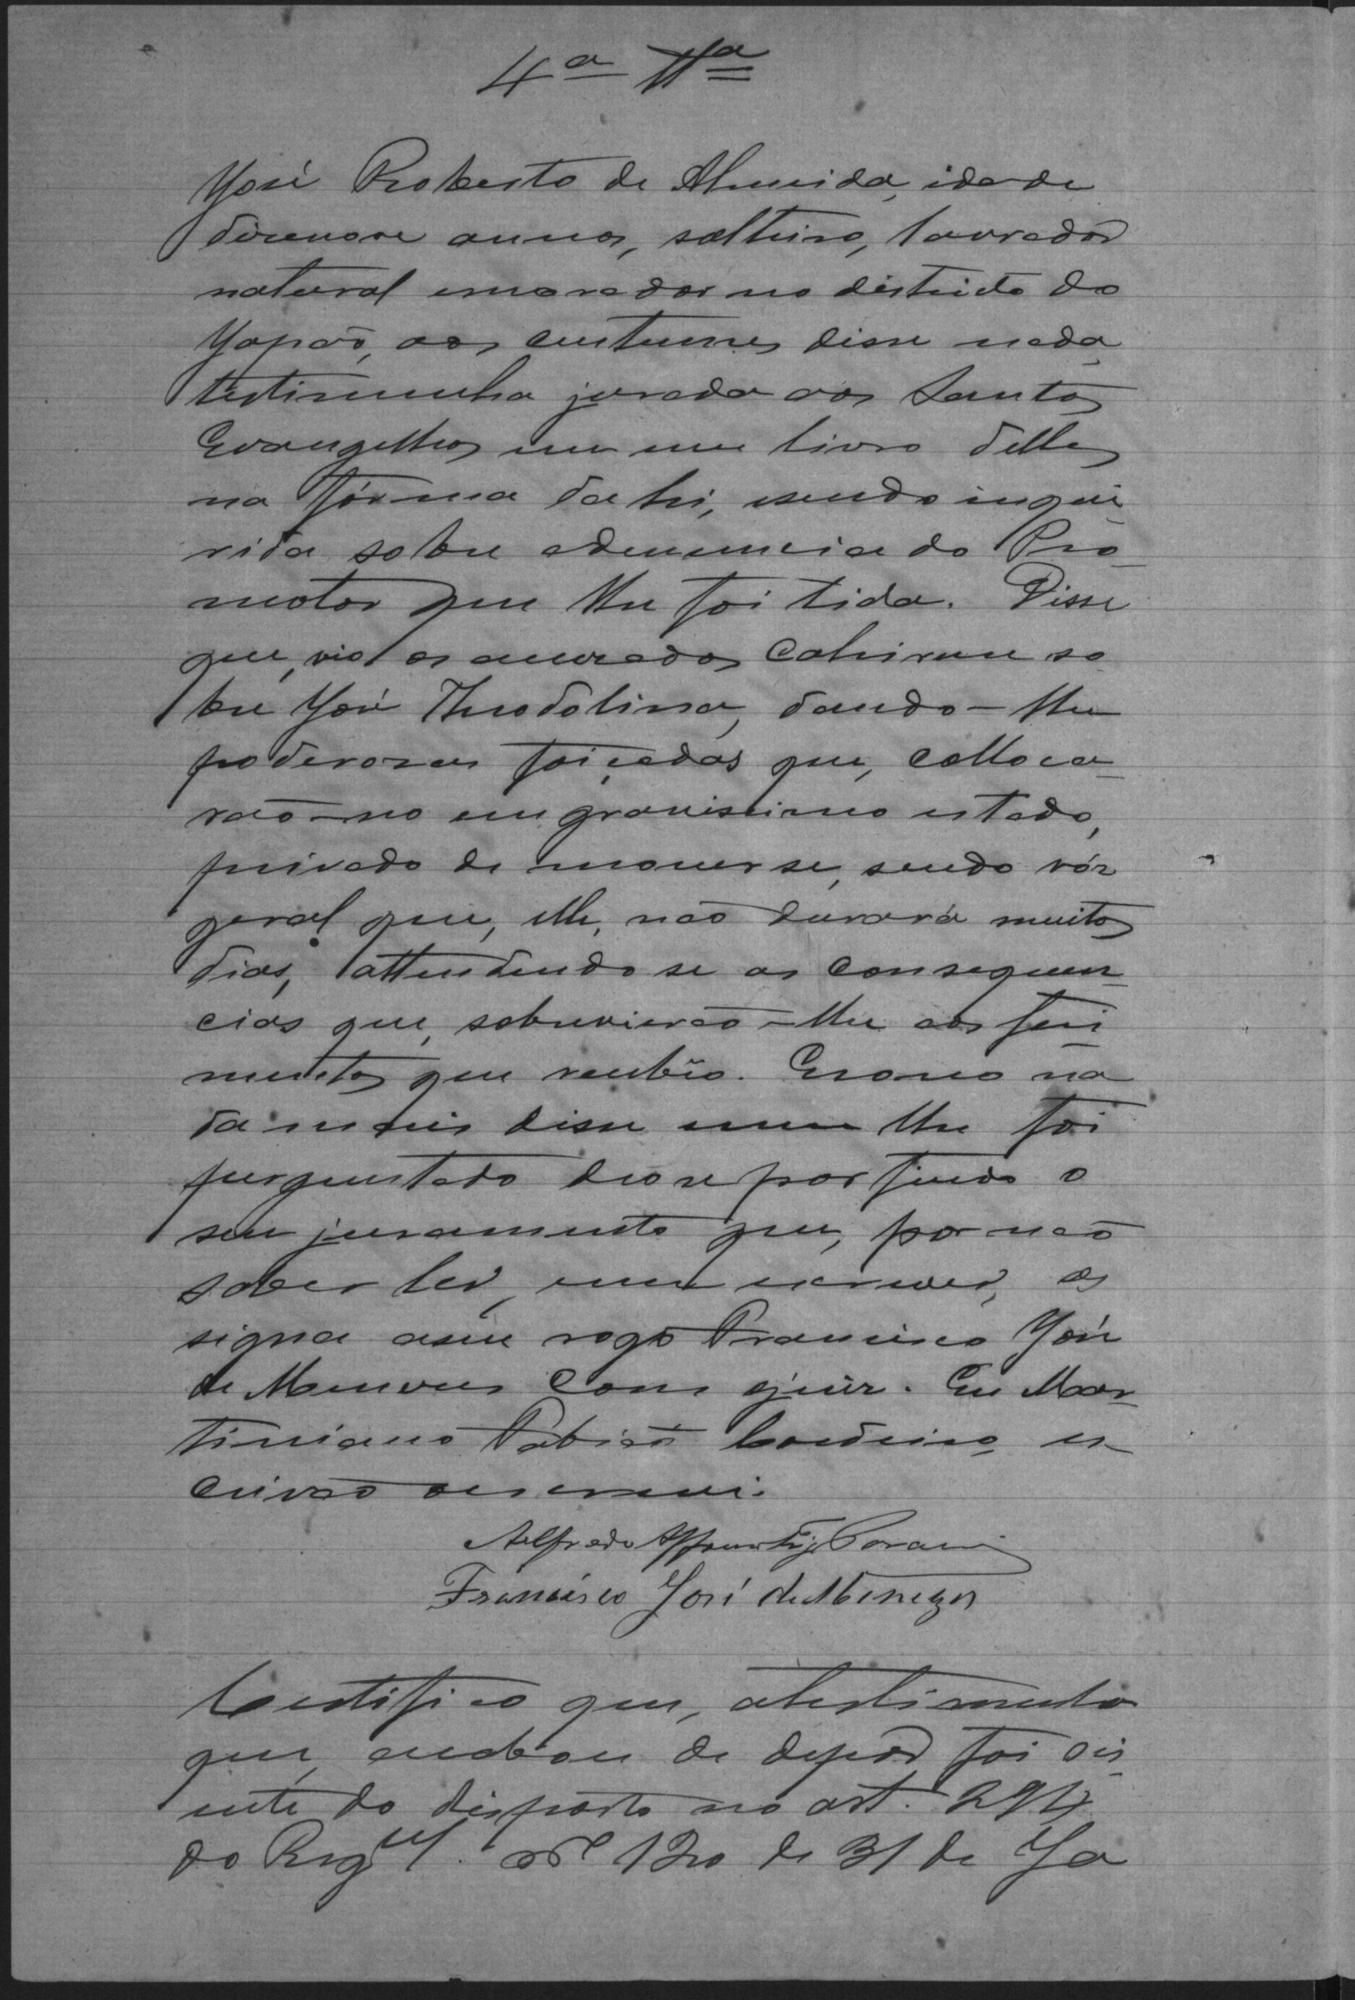 4ª Tª
José Roberto de Almeida, idade
dizenove annos, solteiro, lavrador
natural e morador no districto do
Yapão, aos custumes disse nada,
testimunha jurada aos Santos
Evangelhos em um livro delles
na fórma da lei, e sendo inqui
rida sobre a denuncia do Pro-
motor que lhe foi lida. Disse
que, vio os accuzados cahirem so
bre José Theodolino, dando-lhe
poderozas foiçadas que, colloca-
rão-no em gravissimo estado,
privado de mover se, sendo vóz
geral que, elle, não durará muitos
dias, attendendo se as consequen-
cias que, sobrevierão-lhe aos feri
mentos que recebêo. E como na
da mais disse nem lhe foi
perguntado deo se por findo o
seu juramento que, por não
saber ler, nem escrever, as
signa a seu rogo Francisco José
de Menezes com o juiz. Eu Mar-
tiniano Fabião Cordeiro, es
crivão o escrevi.
Alfredo
Francisco José de Menezes
Certifico que, a testimunha
que, acabou de depor foi sci
ente do disposto no art. 294
do Regul. nº 120 de 31 de Ja